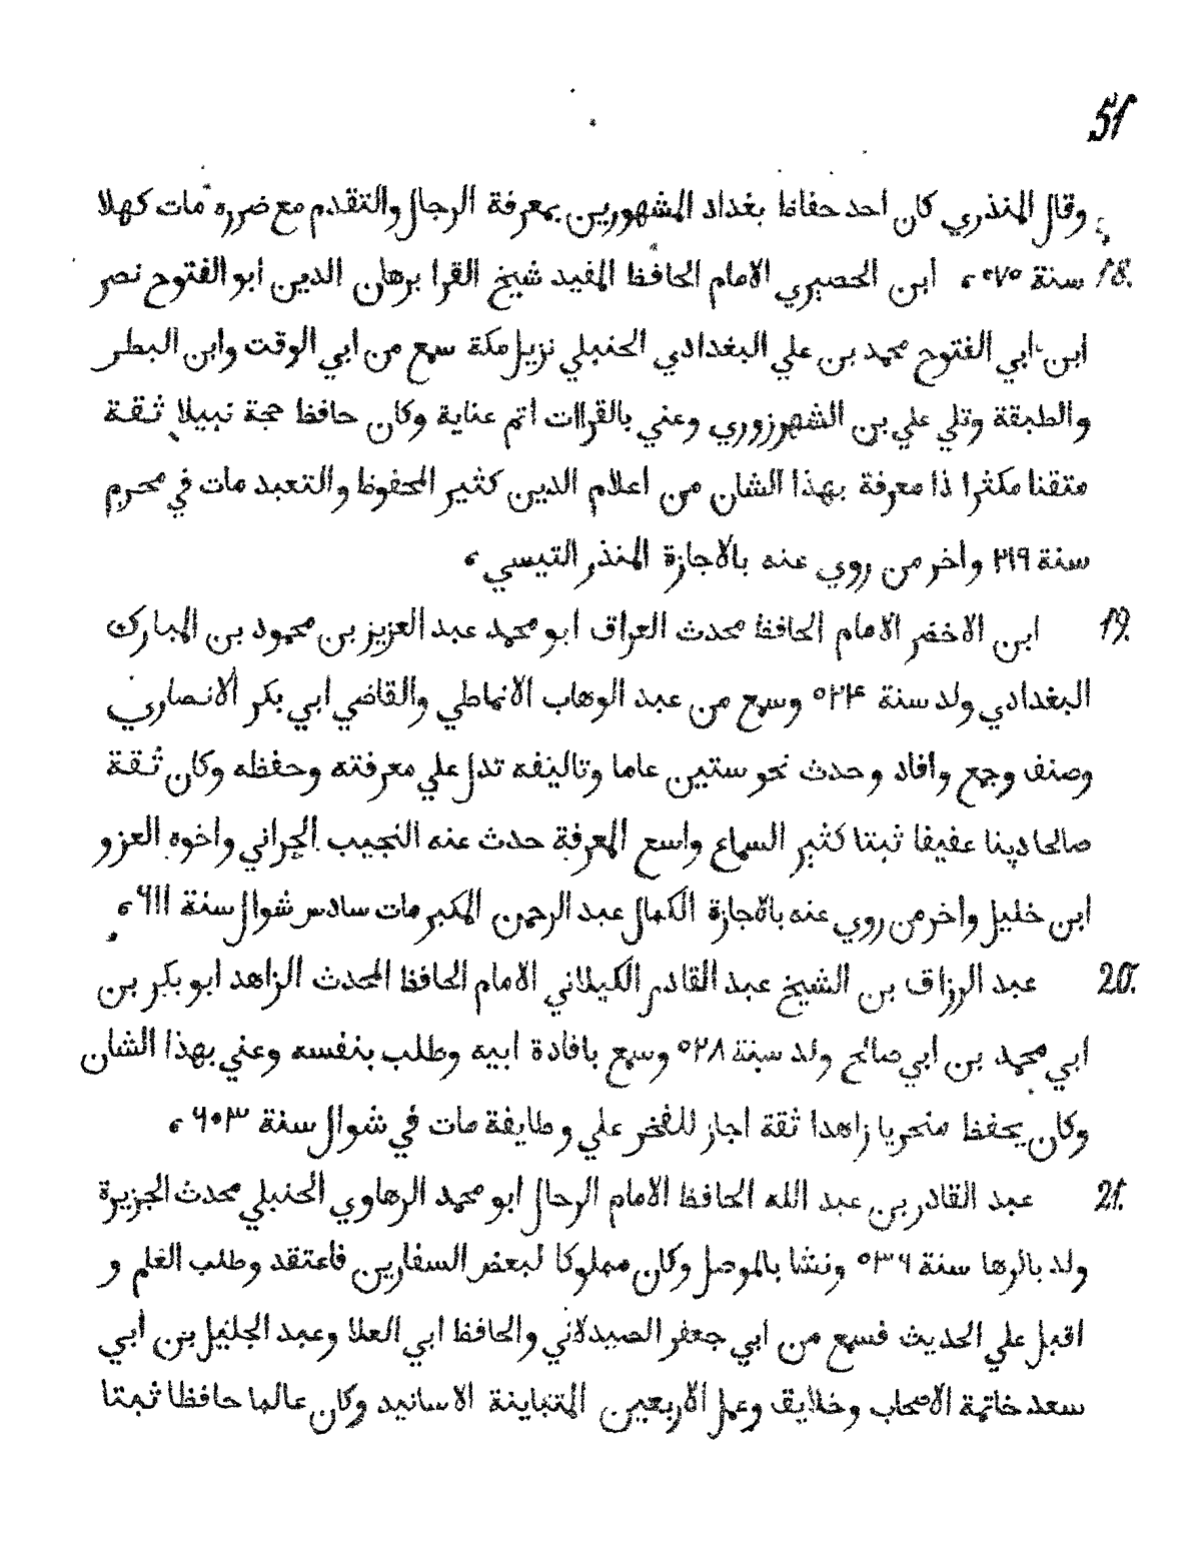 51
وقال المنذري كان احد حفاظ بغداد المشهورين بمعرفة الرجال والتقدم مع ضرره مات كهلا
18. سنة ٥٧٥ ، ابن الحصيري الامام الحافظ المفيد شيخ القرا برهان الدين ابو الفتوح نصر
ابن ابي الفتوح محمد بن علي البغدادي الحنبلي نزيل مكة سمع من ابي الوقت وابن البطر
والطبقة وتلي علي بن الشهرزوري وعني بالقراات اتم عناية وكان حافظ حجة نبيلا ثقة
متقنا مكثرا ذا معرفة بهذا الشان من اعلام الدين كثير المحفوظ والتعبد مات في محرم
سنة ٢١٩ واخر من روي عنه بالاجازة المنذر التيسي ،
19. ابن الاخضر الامام الحافظ محدث العراق ابو محمد عبد العزيز بن محمود بن المبارك
البغدادي ولد سنة ٥٢٤ وسمع من عبد الوهاب الانماطي والقاضي ابي بكر الانصاري
وصنف وجمع وافاد وحدث نحو ستين عاما وتاليفه تدل علي معرفته وحفظه وكان ثقة
صالحا دينا عفيفا ثبتا كثير السماع واسع المعرفة حدث عنه النجيب الحراني واخوه العز و
ابن خليل واخر من روي عنه بالاجازة الكمال عبد الرحمن المكبر مات سادس شوال سنة ٦١١ ،
20. عبد الرزاق بن الشيخ عبد القادر الكيلاني الامام الحافظ المحدث الزاهد ابو بكر بن
ابي محمد بن ابي صالح ولد سنة ٥٢٨ وسمع بافادة ابيه وطلب بنفسه وعني بهذا الشان
وكان يحفظ منحريا زاهدا ثقة اجاز للفخر علي وطايفة مات في شوال سنة ٦٠٣ ،
21. عبد القادر بن عبد الله الحافظ الامام الرحال ابو محمد الرهاوي الحنبلي محدث الجزيرة
ولد بالرها سنة ٥٣٦ ونشا بالموصل وكان مملوكا لبعض السفارين فاعتقد وطلب العلم و
اقبل علي الحديث فسمع من ابي جعفر الصيدلاني والحافظ ابي العلا وعبد الجليل بن ابي
سعد خاتمة الاصحاب وخلايق وعمل الاربعين المتباينة الاسانيد وكان عالما حافظا ثبتا